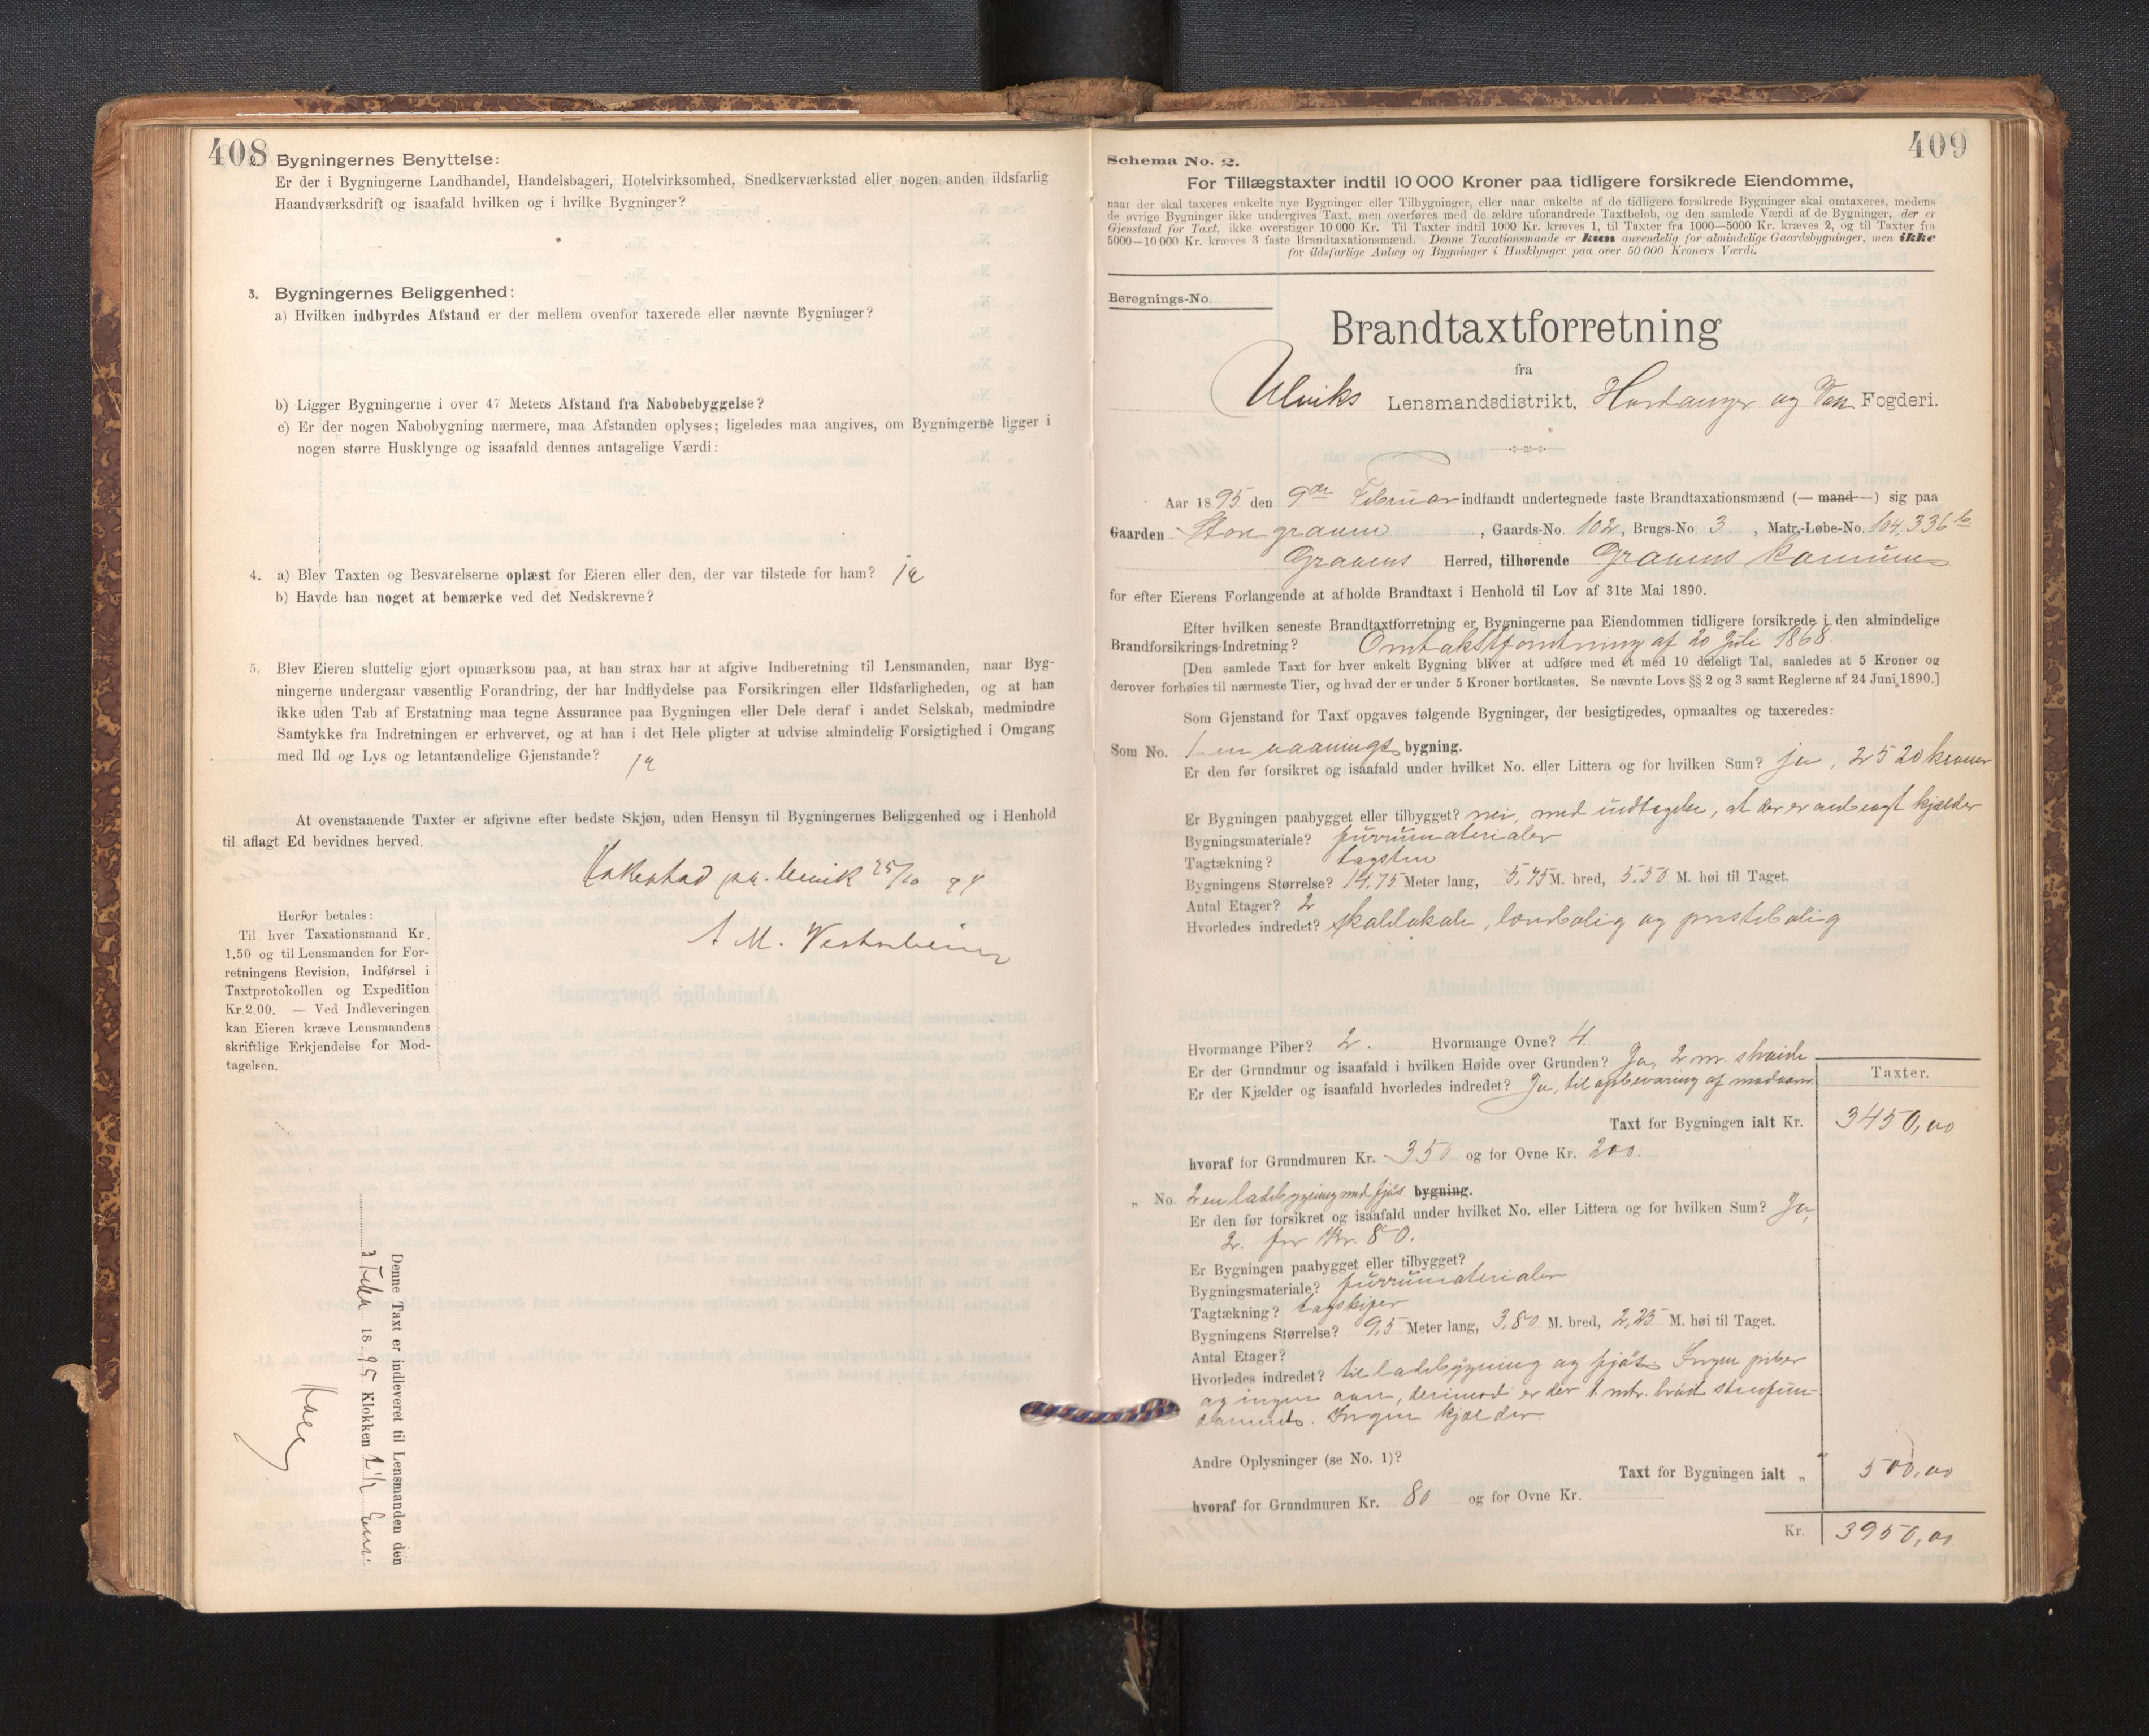 408
2. Bygningernes Benyttelse:
Er der i Bygningerne Landhandel, Handelsbageri, Hotelvirksomhed, Snedkerværksted eller nogen anden ildsfarlig
Haandværksdrift og isaafald hvilken og i hvilke Bygninger?
3. Bygningernes Beliggenhed:
a) Hvilken indbyrdes Afstand er der mellem ovenfor taxerede eller nævnte Bygninger?
b) Ligger Bygningerne i over 47 Meters Afstand fra Nabobebyggelse?
c) Er der nogen Nabobygning nærmere, maa Afstanden oplyses; ligeledes maa angives, om Bygningerne ligger i
nogen større Husklynge og isaafald dennes antagelige Værdi:
4. a) Blev Taxten og Besvarelserne oplæst for Eieren eller den, der var tilstede for ham? ja
b) Havde han noget at bemærke ved det Nedskrevne?
5. Blev Eieren sluttelig gjort opmærksom paa, at han strax har at afgive Indberetning til Lensmanden, naar Byg-
ningerne undergaar væsentlig Forandring, der har Indflydelse paa Forsikringen eller Ildsfarligheden, og at han
ikke uden Tab af Erstatning maa tegne Assurance paa Bygningen eller Dele deraf i andet Selskab, medmindre
Samtykke fra Indretningen er erhvervet, og at han i det Hele pligter at udvise almindelig Forsigtighed i Omgang
med Ild og Lys og letantændelige Gjenstande?
ja
At ovenstaaende Taxter er afgivne efter bedste Skjøn, uden Hensyn til Bygningernes Beliggenhed og i Henhold
til aflagt Ed bevidnes herved.
Hakestad pr. Ulvik 25/10 94
A M. Vestrheim
Herfor betales:
Til hver Taxationsmand Kr.
1.50 og til Lensmanden for For-
retningens Revision, Indførsel i
Taxtprotokollen og Expedition
Kr. 2.00. — Ved Indleveringen
kan Eieren kræve Lensmandens
skriftlige Erkjendelse for Mod-
tagelsen.
Denne Taxt er indleveret til Lensmanden den
3 Febr 1895 Klokken
409
Schema No. 2.
For Tillægstaxter indtil 10 000 Kroner paa tidligere forsikrede Eiendomme,
naar der skal taxeres enkelte nye Bygninger eller Tilbygninger, eller naar enkelte af de tidligere forsikrede Bygninger skal omtaxeres, medens
de øvrige Bygninger ikke undergives Taxt, men overføres med de ældre uforandrede Taxtbeløb, og den samlede Værdi af de Bygninger, der er
Gjenstand for Taxt, ikke overstiger 10 000 Kr. Til Taxter indtil 1000 Kr. kræves 1, til Taxter fra 1000—5000 Kr. kræves 2, og til Taxter fra
5000—10 000 Kr. kræves 3 faste Brandtaxationsmænd. Denne Taxationsmaade er kun anvendelig for almindelige Gaardsbygninger, men ikke
for ildsfarlige Anlæg og Bygninger i Husklynger paa over 50 000 Kroners Værdi.
Beregnings-No.
Brandtaxtforretning
fra
Ulviks Lensmandsdistrikt, Hardanger og Voss Fogderi.
Aar 1895 den 9de Februar indfandt undertegnede faste Brandtaxationsmænd (— mand —) sig paa
Gaarden Store graven, Gaards-No. 102, Brugs-No. 3, Matr.-Løbe-No. 104, 336 b
Gravens Herred, tilhørende Gravens Komune
for efter Eierens Forlangende at afholde Brandtaxt i Henhold til Lov af 31te Mai 1890.
Efter hvilken seneste Brandtaxtforretning er Bygningerne paa Eiendommen tidligere forsikrede i den almindelige
Brandforsikrings-Indretning? Omtakstforretning af 20 Juli 1868.
[Den samlede Taxt for hver enkelt Bygning bliver at udføre med et med 10 deleligt Tal, saaledes at 5 Kroner og
derover forhøies til nærmeste Tier, og hvad der er under 5 Kroner bortkastes. Se nævnte Lovs §§ 2 og 3 samt Reglerne af 24 Juni 1890.]
Som Gjenstand for Taxt opgaves følgende Bygninger, der besigtigedes, opmaaltes og taxeredes:
Som No. 1 en vaanings bygning.
Er den før forsikret og isaafald under hvilket No. eller Littera og for hvilken Sum? ja, 2520 kroner
Er Bygningen paabygget eller tilbygget? nei, med undtagelse, at der er anbragt kjælder
Bygningsmateriale? furrumaterialer
Tagtækning? tagsten
Bygningens Størrelse? 14,75 Meter lang, 5,75 M. bred, 5,50 M. høi til Taget.
Antal Etager? 2
Hvorledes indredet? skolelokale, lærerbolig og prestebolig
Hvormange Piber? 2. Hvormange Ovne? 4
Er der Grundmur og isaafald i hvilken Høide over Grunden? Ja, 2 m.
Er der Kjælder og isaafald hvorledes indredet? Ja, til opbevaring af madvarer
Taxter.
Taxt for Bygningen ialt Kr. 3450,00
hvoraf for Grundmuren Kr. 350 og for Ovne Kr. 200.
„ No. 2 en ladebygning med fjøs bygning.
Er den før forsikret og isaafald under hvilket No. eller Littera og for hvilken Sum? Ja,
2. for Kr. 80.
Er Bygningen paabygget eller tilbygget?
Bygningsmateriale? furrumaterialer
Tagtækning? tagskifer
Bygningens Størrelse? 9,5 Meter lang, 3,80 M. bred, 2,25 M. høi til Taget.
Antal Etager?
Hvorledes indredet? til ladebygning og fjøs Ingen piber
og ingen ovn, derimod er der 1 mtr. stenfun-
dament. Ingen kjælder.
Andre Oplysninger (se No. 1)?
Taxt for Bygningen ialt „ 500,00
hvoraf for Grundmuren Kr. 80 og for Ovne Kr.
Kr. 3950,00